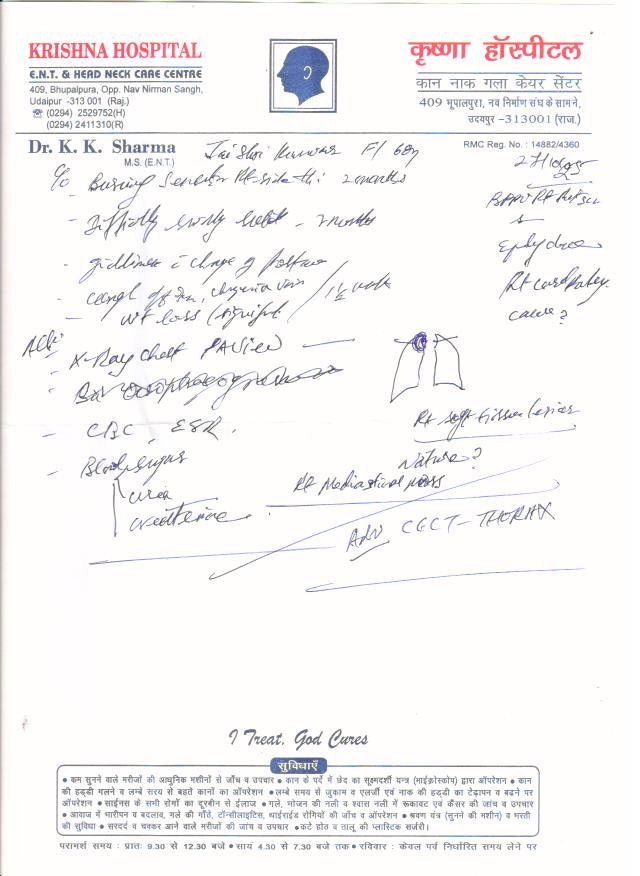 KRISHNA HOSPITAL
E.N.T. & HEAD NECK CARE CENTRE
409, Bhupalpura, Opp. Nav Nirman Sangh,
Udaipur -313 001 (Raj.)
☎ (0294) 2529752(H)
(0294) 2411310(R)
कृष्णा हॉस्पीटल
कान नाक गला केयर सेंटर
409 भूपालपुरा, नव निर्माण संघ के सामने,
उदयपुर -313001 (राज.)
Dr. K. K. Sharma
M.S. (E.N.T.)
RMC Reg. No. : 14882/4360
Jai Shri Kunwar F/ 68y
C/o Burning Rt side 2 months
- 2 months
- giddiness c change of posture
- cough off & on, change in voice / 1½ month
- wt loss (significant)
Rt cord palsy
cause?
Adv
- X-Ray Chest PA View
- CBC, ESR.
- Blood sugar
urea
creatinine
Rt soft tissue lesion
Nature?
Rt Mediastinal mass
Adv CECT - THORAX
I Treat, God Cures
सुविधाएँ
● कम सुनने वाले मरीजों की आधुनिक मशीनों से जाँच व उपचार ● कान के पर्दे में छेद का सूक्ष्मदर्शी यन्त्र (माईक्रोस्कोप) द्वारा ऑपरेशन ● कान
की हड्डी गलने व लम्बे समय से बहते कानों का ऑपरेशन ● लम्बे समय से जुकाम व एलर्जी एवं नाक की हड्डी का टेढ़ापन व बढ़ने पर
ऑपरेशन ● साईनस के सभी रोगों का दूरबीन से ईलाज ● गले, भोजन की नली व श्वास नली में रूकावट एवं कैंसर की जांच व उपचार
● आवाज में भारीपन व बदलाव, गले की गाँठें, टॉन्सीलाइटिस, थाईराईड रोगियों की जाँच व ऑपरेशन ● श्रवण यंत्र (सुनने की मशीन) व भरती
की सुविधा ● सरदर्द व चक्कर आने वाले मरीजों की जांच व उपचार ● कटे होठ व तालू की प्लास्टिक सर्जरी।
परामर्श समय : प्रातः 9.30 से 12.30 बजे ● सायं 4.30 से 7.30 बजे तक ● रविवार : केवल पूर्व निर्धारित समय लेने पर